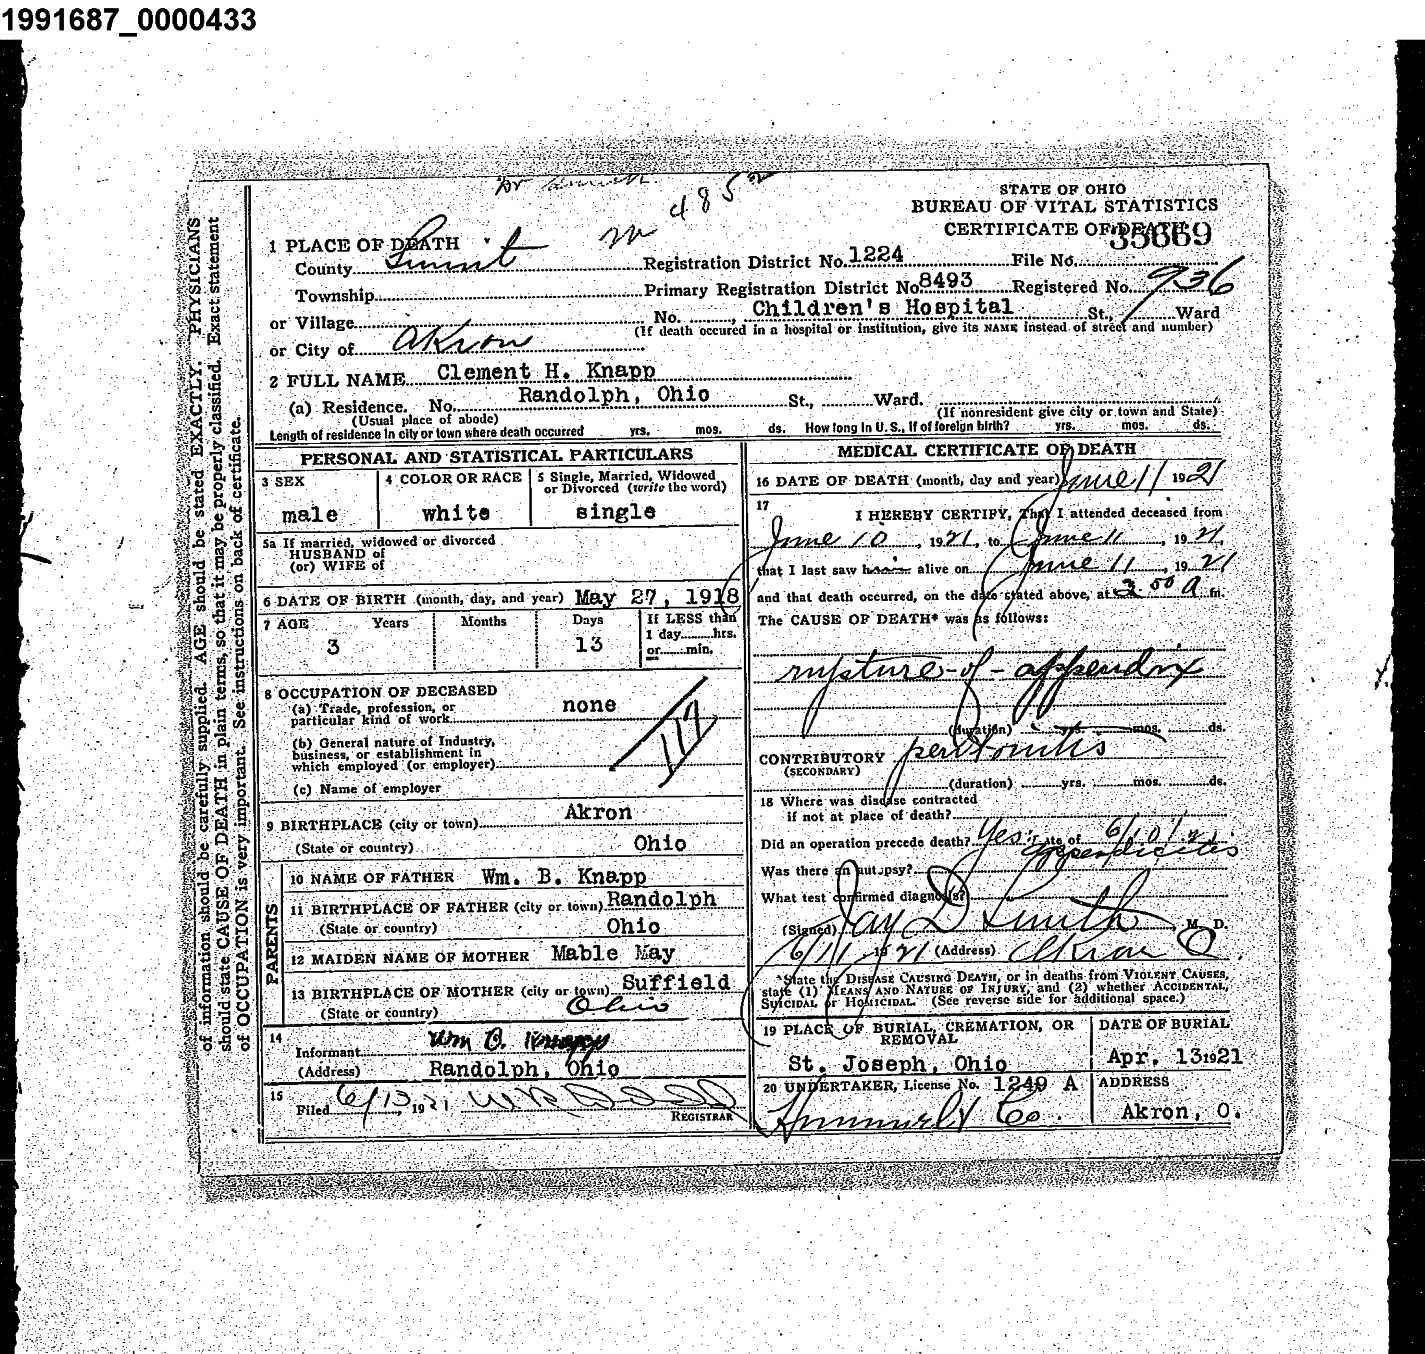 1991687_0000433
4852
STATE OF OHIO
BUREAU OF VITAL STATISTICS
CERTIFICATE OF DEATH
35669
1 PLACE OF DEATH
County Summit Registration District No. 1224 File No.
Township Primary Registration District No. 8493 Registered No. 936
or Village No. Children's Hospital St., Ward
(If death occured in a hospital or institution, give its NAME instead of street and number)
or City of Akron
2 FULL NAME Clement H. Knapp
(a) Residence. No. Randolph, Ohio St., Ward.
(Usual place of abode) (If nonresident give city or town and State)
Length of residence in city or town where death occurred yrs. mos. ds. How long in U. S., if of foreign birth? yrs. mos. ds.
PERSONAL AND STATISTICAL PARTICULARS
3 SEX 4 COLOR OR RACE 5 Single, Married, Widowed
or Divorced (write the word)
male white single
5a If married, widowed or divorced
HUSBAND of
(or) WIFE of
6 DATE OF BIRTH (month, day, and year) May 27, 1918
7 AGE Years Months Days If LESS than
1 day hrs.
3 13 or min.
8 OCCUPATION OF DECEASED
(a) Trade, profession, or
particular kind of work none
117
(b) General nature of Industry,
business, or establishment in
which employed (or employer)
(c) Name of employer
9 BIRTHPLACE (city or town) Akron
(State or country) Ohio
PARENTS
10 NAME OF FATHER Wm. B. Knapp
11 BIRTHPLACE OF FATHER (city or town) Randolph
(State or country) Ohio
12 MAIDEN NAME OF MOTHER Mable May
13 BIRTHPLACE OF MOTHER (city or town) Suffield
(State or country) Ohio
14
Informant Wm B. Knapp
(Address) Randolph, Ohio
15
Filed 6/13, 1921
REGISTRAR
MEDICAL CERTIFICATE OF DEATH
16 DATE OF DEATH (month, day and year) June 11 1921
17
I HEREBY CERTIFY, That I attended deceased from
June 10, 1921, to June 11, 1921,
that I last saw h alive on June 11, 1921
and that death occurred, on the date stated above, at 3 50 A m.
The CAUSE OF DEATH* was as follows:
rupture of appendix
(duration) yrs. mos. ds.
CONTRIBUTORY peritonitis
(SECONDARY)
(duration) yrs. mos. ds.
18 Where was disease contracted
if not at place of death?
Did an operation precede death? Yes Date of 6/10/21
appendicitis
Was there an autopsy?
What test confirmed diagnosis?
(Signed) Jay D Smith M. D.
6/11 1921 (Address) Akron O
*State the DISEASE CAUSING DEATH, or in deaths from VIOLENT CAUSES,
state (1) MEANS AND NATURE OF INJURY, and (2) whether ACCIDENTAL,
SUICIDAL or HOMICIDAL. (See reverse side for additional space.)
19 PLACE OF BURIAL, CREMATION, OR
REMOVAL
DATE OF BURIAL
St. Joseph, Ohio Apr. 13 1921
20 UNDERTAKER, License No. 1249 A ADDRESS
Co. Akron, O.
of information should be carefully supplied. AGE should be stated EXACTLY. PHYSICIANS
should state CAUSE OF DEATH in plain terms, so that it may be properly classified. Exact statement
of OCCUPATION is very important. See instructions on back of certificate.